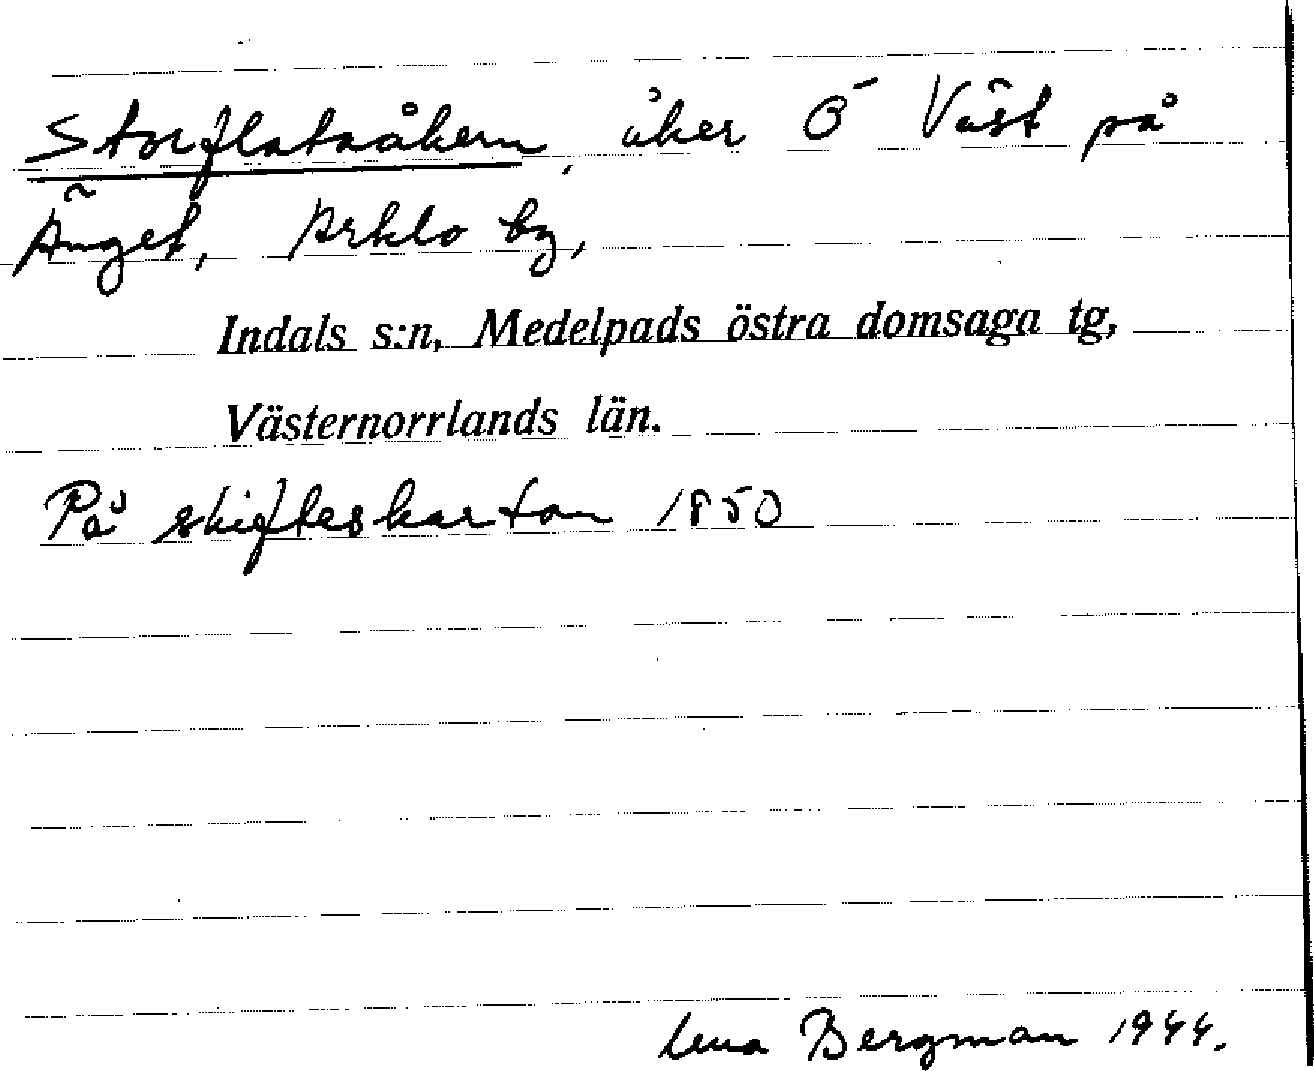 Storflataåkern, åker Ö Väst på
Änget, Arklo by,
Indals s:n, Medelpads östra domsaga tg,
Västernorrlands län.
På skifteskartan 1850
Lena Bergman 1944.